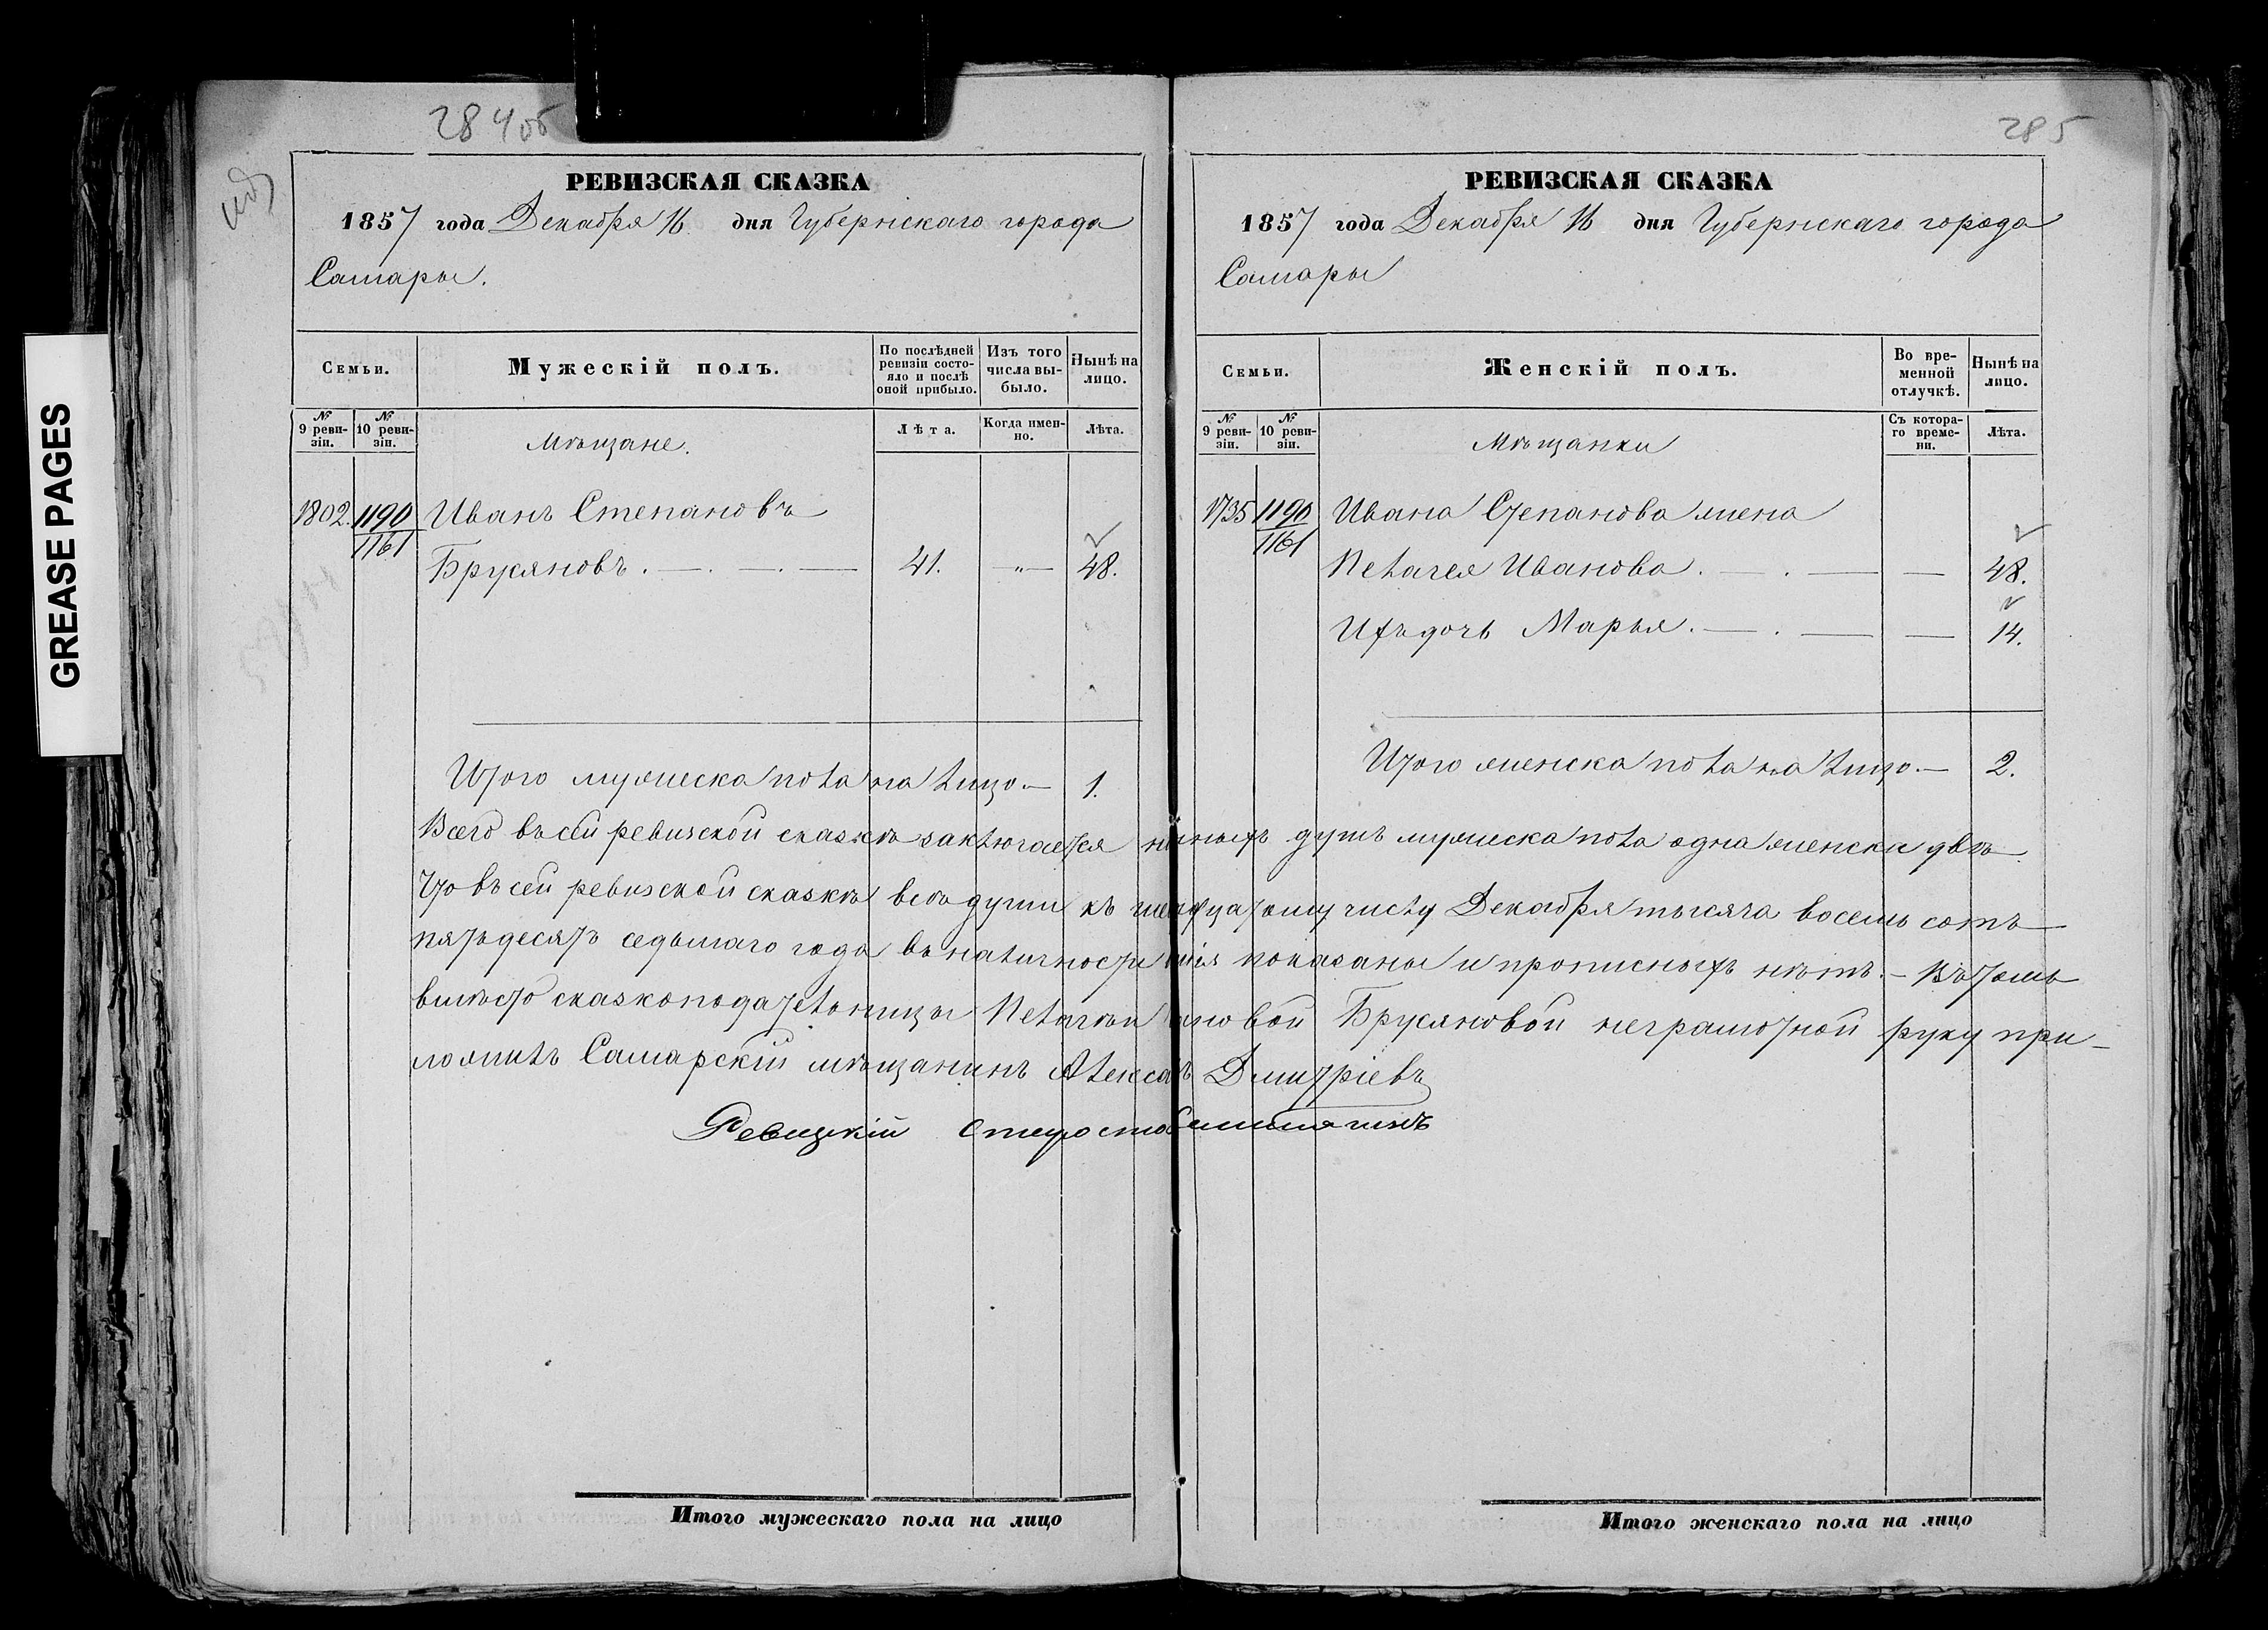 GREASE PAGES
284об
РЕВИЗСКАЯ СКАЗКА
1857 года Декабря 16 дня Губернскаго города
Самары.
Семьи.
Мужескій полъ.
По послѣдней ревизіи состояло и послѣ оной прибыло.
Изъ того числа выбыло.
Нынѣ на лицо.
№ 9 ревизіи.
№ 10 ревизіи.
Мѣщане.
Лѣта.
Когда именно.
Лѣта.
1802. 1190 Иванъ Степановъ
1161
Брусяновъ. — . — . — 41. —„— 48.
Итого мужеска пола на лицо. — 1.
285
РЕВИЗСКАЯ СКАЗКА
1857 года Декабря 16 дня Губернскаго города
Самары
Семьи.
Женскій полъ.
Во временной отлучкѣ.
Нынѣ на лицо.
№ 9 ревизіи.
№ 10 ревизіи.
Мѣщанки
Съ котораго времени.
Лѣта.
1735 1190 Ивана Степанова жена
1161
Пелагея Иванова. — . — — 48.
Ихъ дочь Марья. — . — — 14.
Итого женска пола на лицо. — 2.
Всего въ сей ревизской сказкѣ заключается душъ мужеска пола одна женска двѣ.
Что въ сей ревизской сказкѣ всѣ души къ числу Декабря тысяча восемь сотъ
пятьдесятъ седьмаго года въ наличности показаны и прописныхъ нѣтъ. — Въ томъ
вмѣсто сказкоподательницы Пелагеи Брусяновой неграмотной руку при-
ложилъ Самарскій мѣщанинъ Дмитріевъ
Ревизскій староста
Итого мужескаго пола на лицо
Итого женскаго пола на лицо